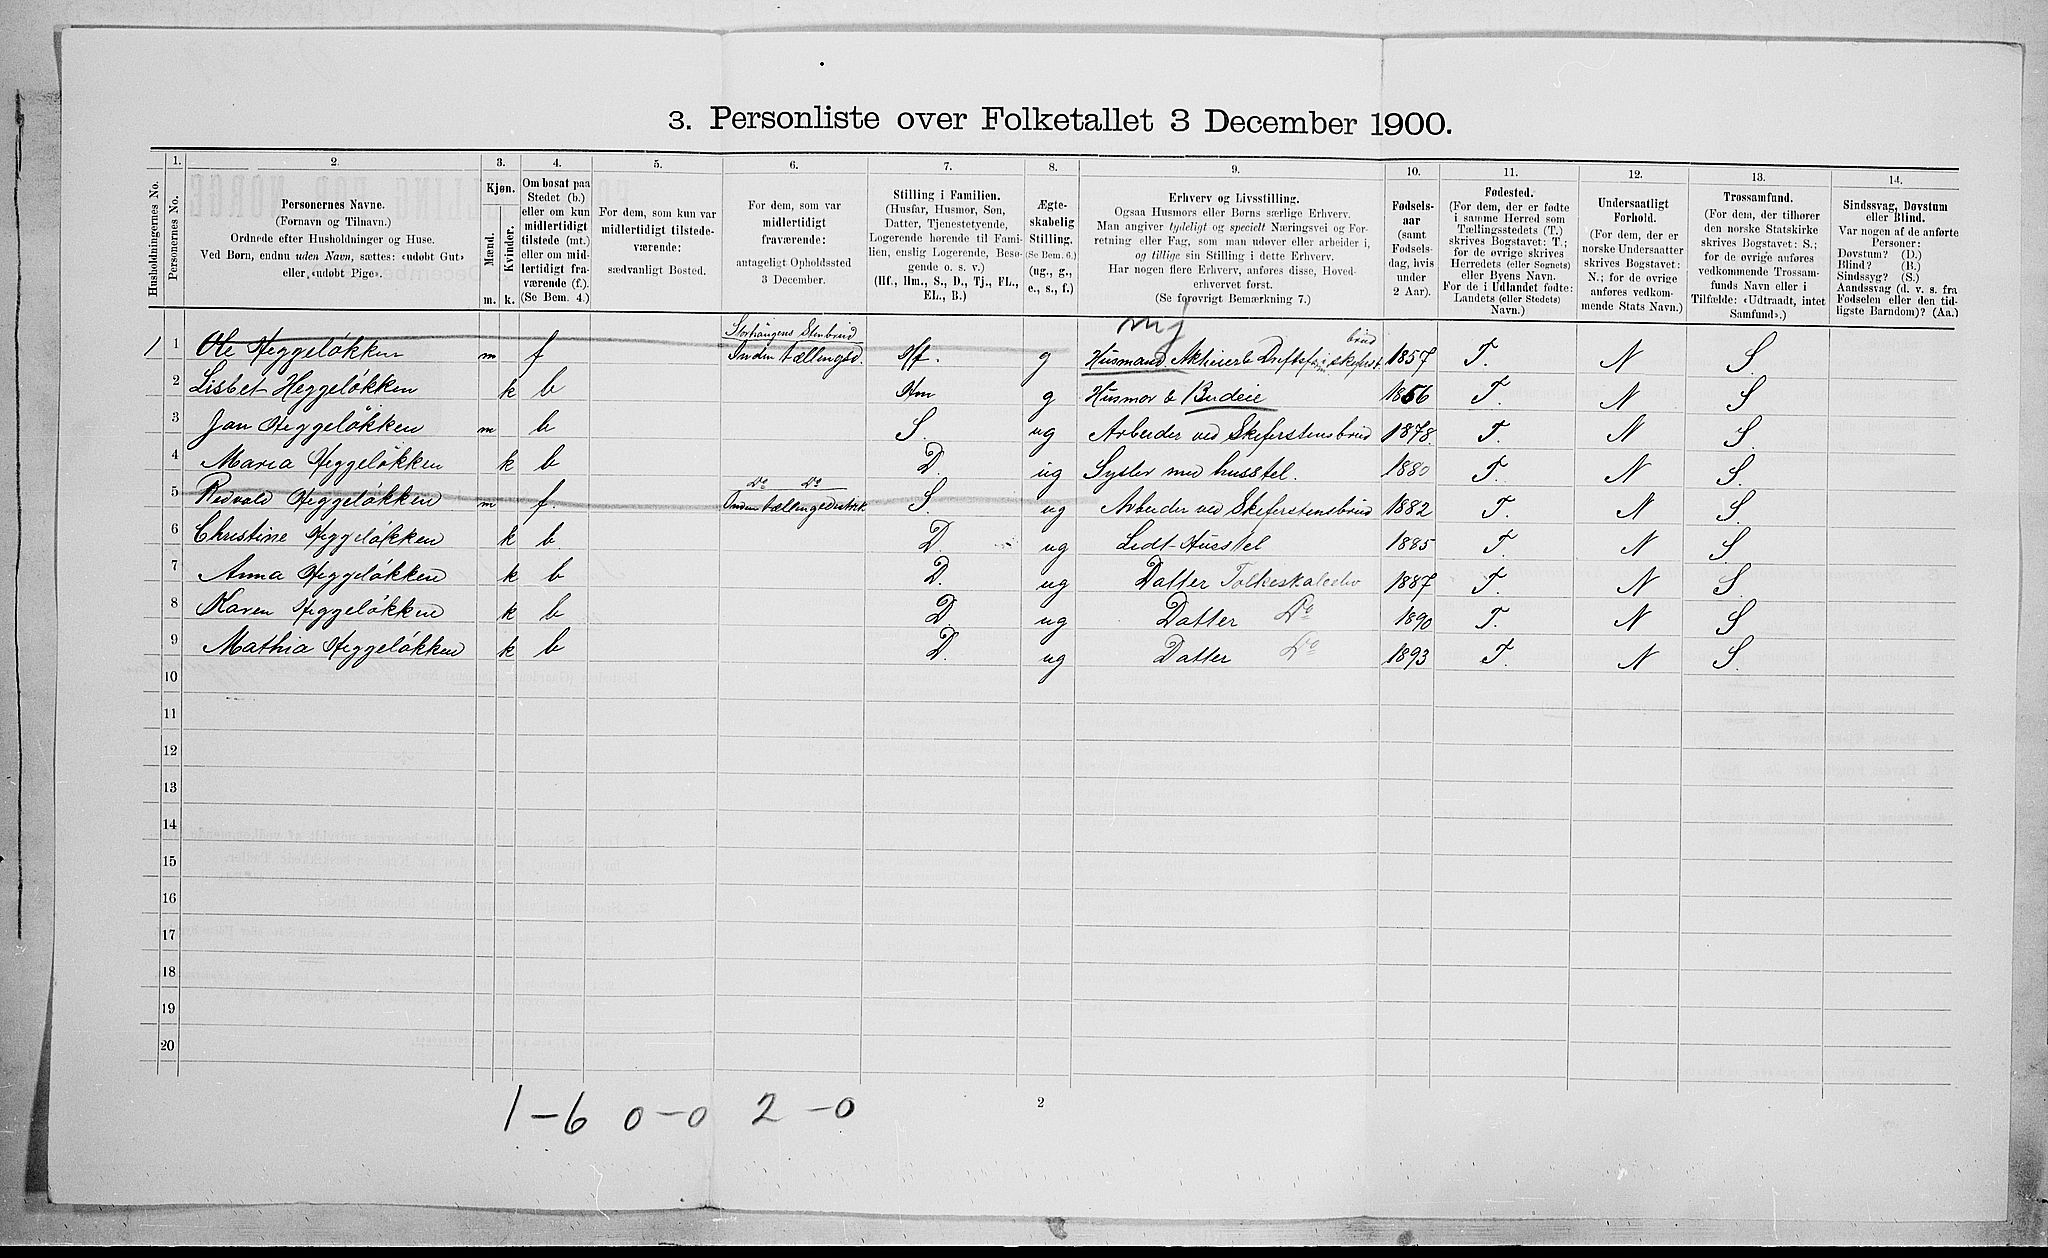 3. Personliste over Folketallet 3 December 1900.
Husholdningernes No.
1.
Personernes No.
2.
Personernes Navne.
(Fornavn og Tilnavn.)
Ordnede efter Husholdninger og Huse.
Ved Børn, endnu uden Navn, sættes: «udøbt Gut»
eller «udøbt Pige».
3.
Kjøn.
Mænd.
Kvinder.
m. k.
4.
Om bosat paa
Stedet (b.)
eller om kun
midlertidigt
tilstede (mt.)
eller om mid-
lertidigt fra-
værende (f.).
(Se Bem. 4.)
5.
For dem, som kun var
midlertidigt tilstede-
værende:
sædvanligt Bosted.
6.
For dem, som var
midlertidigt
fraværende:
antageligt Opholdssted
3 December.
7.
Stilling i Familien.
(Husfar, Husmor, Søn,
Datter, Tjenestetyende,
Logerende hørende til Fami-
lien, enslig Logerende, Besø-
gende o. s. v.)
(Hf., Hm., S., D., Tj., FL.,
EL., B.)
8.
Ægte-
skabelig
Stilling.
(Se Bem. 6.)
(ug., g.,
e., s., f.)
9.
Erhverv og Livsstilling.
Ogsaa Husmors eller Børns særlige Erhverv.
Man angiver tydeligt og specielt Næringsvei og For-
retning eller Fag, som man udøver eller arbeider i,
og tillige sin Stilling i dette Erhverv.
Har nogen flere Erhverv, anføres disse, Hoved-
erhvervet først.
(Se forøvrigt Bemærkning 7.)
10.
Fødsels-
aar
(samt
Fødsels-
dag, hvis
under
2 Aar).
11.
Fødested.
(For dem, der er fødte
i samme Herred som
Tællingsstedets (T.)
skrives Bogstavet: T.;
for de øvrige skrives
Herredets (eller Sognets)
eller Byens Navn.
For de i Udlandet fødte:
Landets (eller Stedets)
Navn.)
12.
Undersaatligt
Forhold.
(For dem, der er
norske Undersaatter
skrives Bogstavet:
N.; for de øvrige
anføres vedkom-
mende Stats Navn.)
13.
Trossamfund.
(For dem, der tilhører
den norske Statskirke
skrives Bogstavet: S.;
for de øvrige anføres
vedkommende Trossam-
funds Navn eller i
Tilfælde: «Udtraadt, intet
Samfund».)
14.
Sindssvag, Døvstum
eller Blind.
Var nogen af de anførte
Personer:
Døvstum? (D.)
Blind? (B.)
Sindssyg? (S.)
Aandssvag (d. v. s. fra
Fødselen eller den tid-
ligste Barndom)? (Aa.)
1 1 Ole Heggeløkken m f Stenbrud Inden tællingsd. Hf. g Husmand. brud 1857 T. N S
2 Lisbet Heggeløkken k b Hm g Husmor & Budeie 1856 T. N S
3 Jon Heggeløkken m b S. ug Arbeider ved Skeferstensbrud 1878. T. N S.
4 Maria Heggeløkken k b D. ug Sysler med husstel. 1880 T. N S.
5 Redvald Heggeløkken m f. Do Do Inden tællingsdistrik S. ug Arbeider ved Skeferstensbrud 1882 T. N S.
6 Christine Heggeløkken k b. D. ug Lidt Husstel 1885 T. N S
7 Anna Heggeløkken k b D. ug Datter Folkeskoleelev 1887 T. N S.
8 Karen Heggeløkken k b D. ug Datter Do 1890 T. N S
9 Mathia Heggeløkken k b D. ug Datter Do 1893 T. N S.
10
11
12
13
14
15
16
17
18
19
20
1-6 0-0 2-0
2